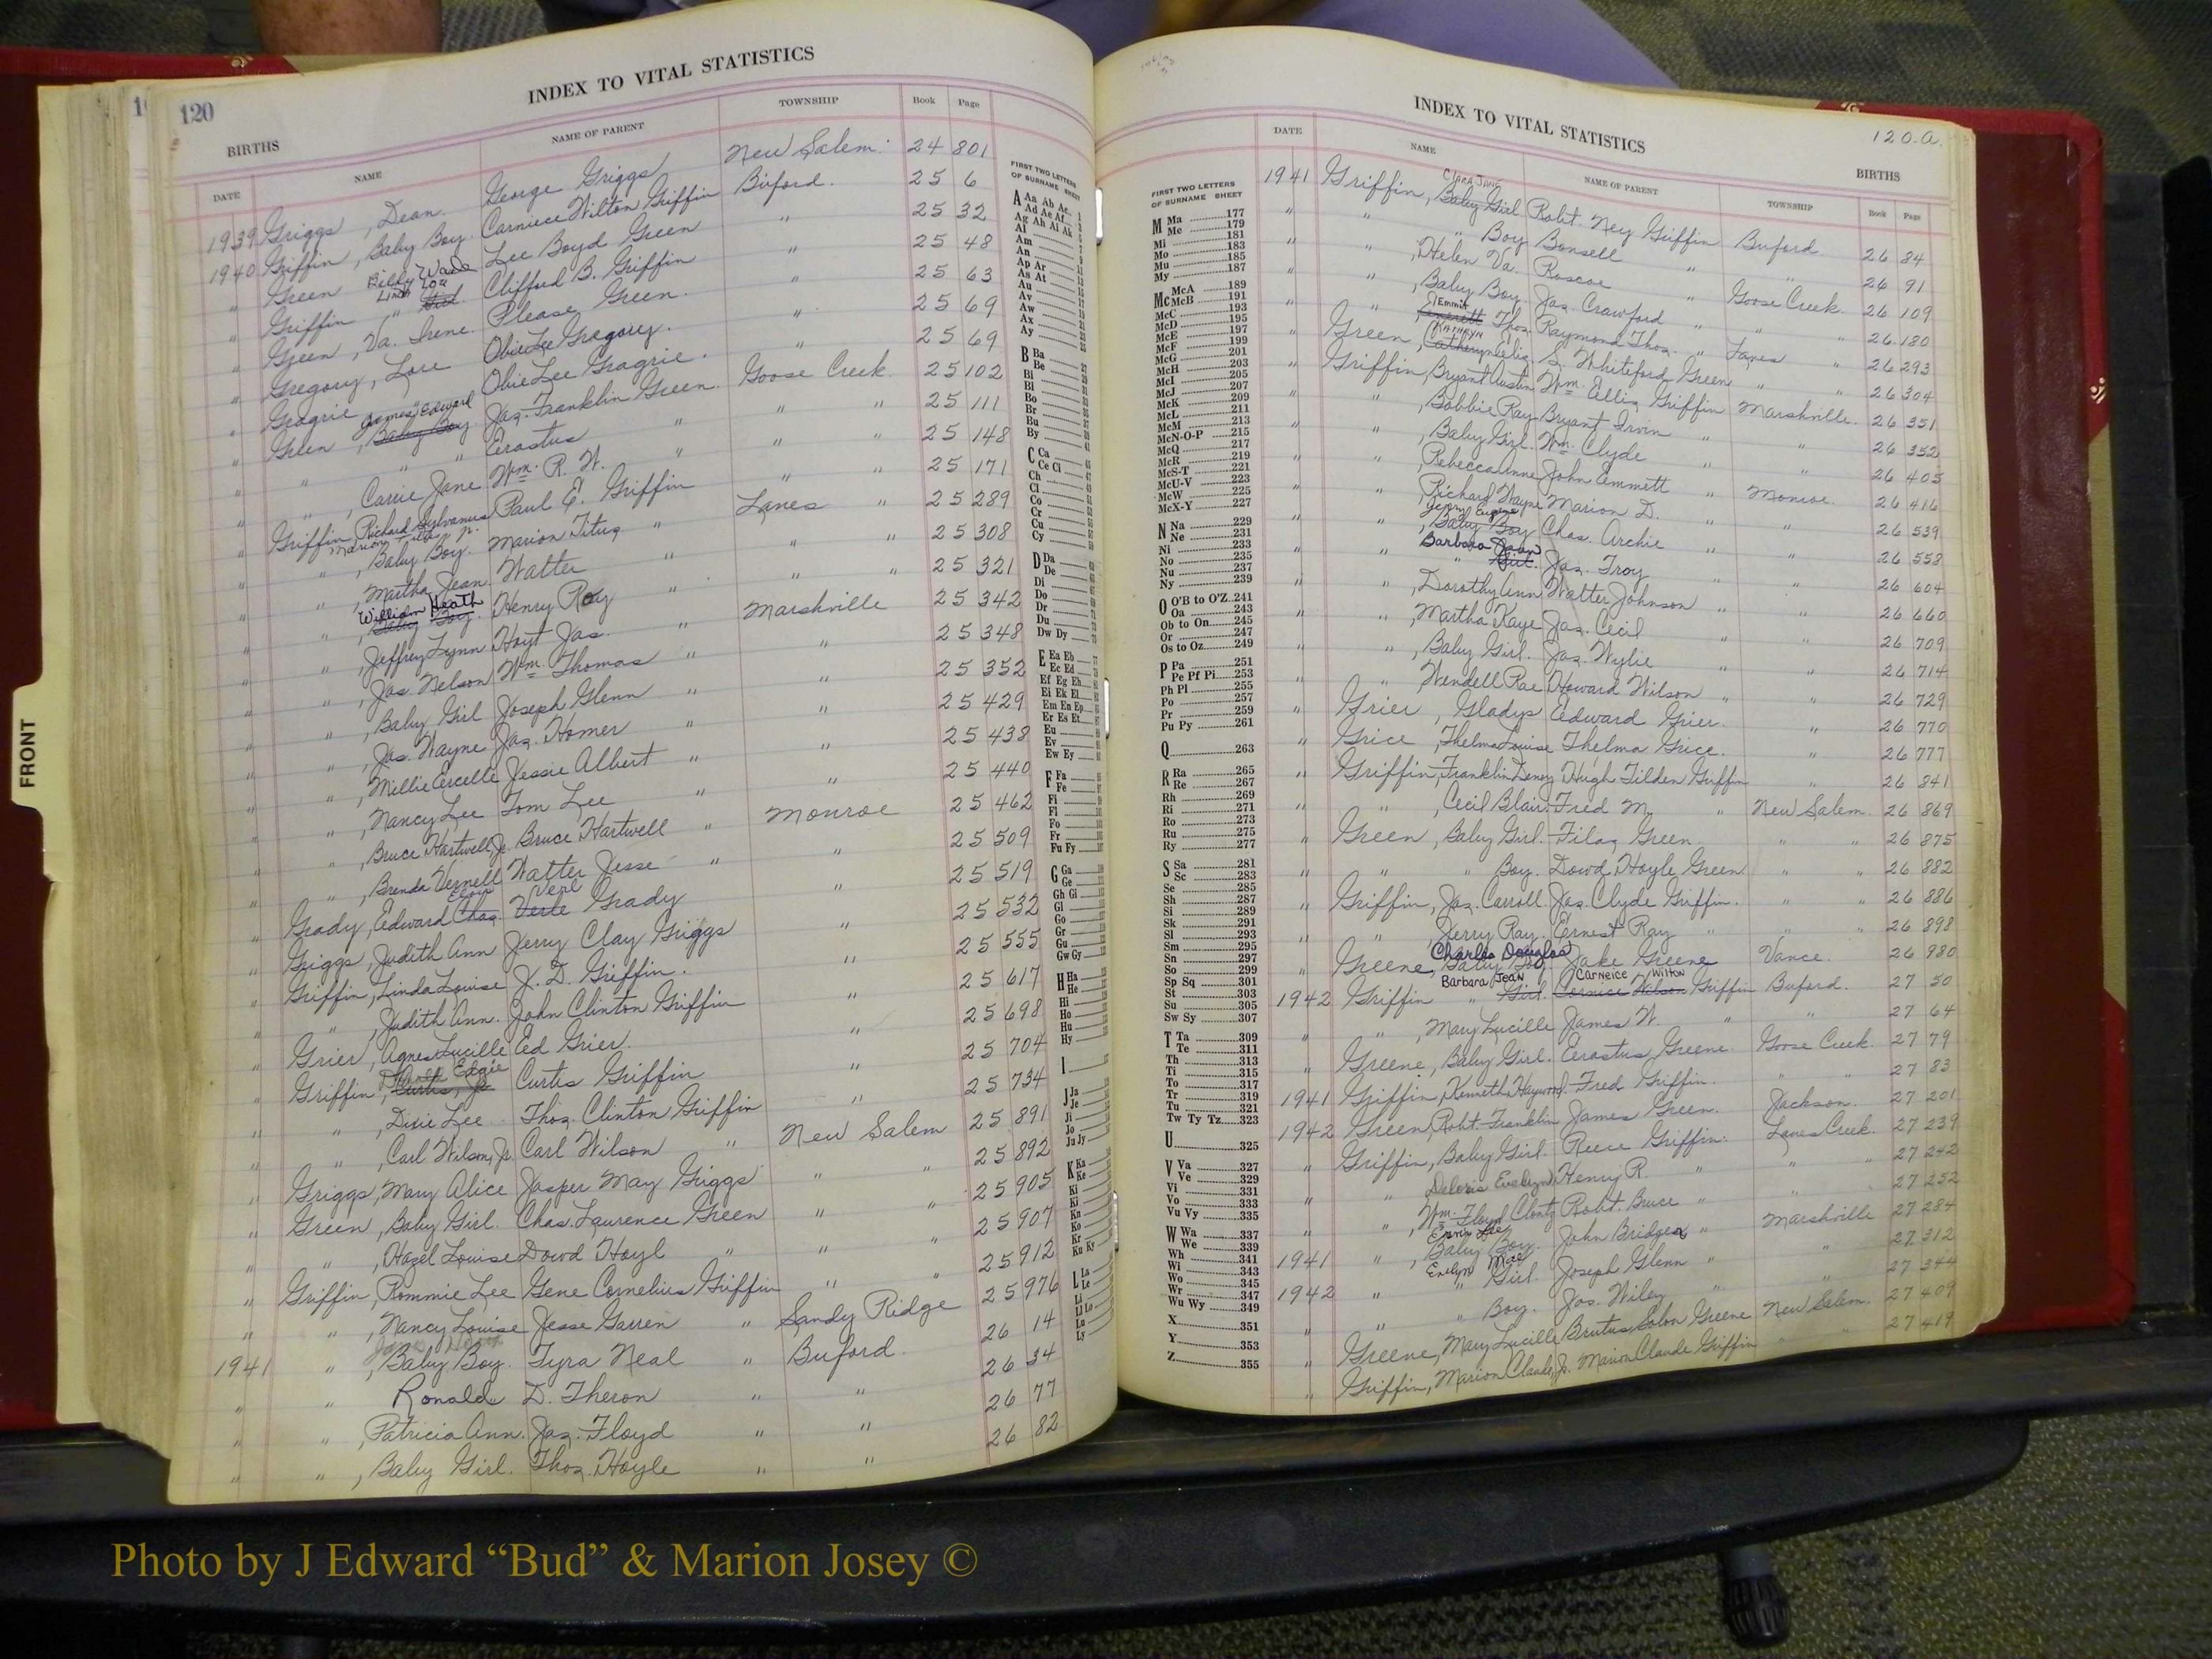 FRONT
120
INDEX TO VITAL STATISTICS
BIRTHS
DATE NAME NAME OF PARENT TOWNSHIP Book Page
1939 Griggs, Dean. George Griggs New Salem 24 801
1940 Griffin, Baby Boy. Carniece Wilton Griffin Buford. 25 6
Billy Wade
" Green Lee Boyd Green " 25 32
Linda Lou
" Griffin " Girl. Clifford B. Griffin " 25 48
" Green, Va. Irene. Please Green. " 25 63
" Gregory, Lore Obie Lee Gregory. " 25 69
" Gragrie Obie Lee Gragrie. " 25 69
James Edward
" Green, Baby Boy Jas. Franklin Green. Goose Creek. 25 102
" " " Erastus " " " 25 111
" " , Carrie Jane Wm. R. W. " " " 25 148
" Griffin, Richard Sylvanus Paul E. Griffin " " 25 171
" " , Baby Boy. Marion Titus " Lanes " 25 289
" " , Martha Jean Walter " " " 25 308
William Heath
" " , Baby Boy. Henry Roy " " " 25 321
" " , Jeffrey Lynn Hoyt Jas. " Marshville 25 342
" " , Jas. Nelson Wm. Thomas " " 25 348
" " , Baby Girl Joseph Glenn " " 25 352
" " , Jas. Wayne Jas. Homer " " 25 429
" " , Millie Ercelle Jessie Albert " " 25 438
" " , Nancy Lee Tom Lee " " 25 440
" " , Bruce Hartwell, Jr. Bruce Hartwell " Monroe 25 462
" " , Brenda Vernell Walter Jesse " " 25 509
" Grady, Edward Chas. Verle Grady " 25 519
" Griggs, Judith Ann Jerry Clay Griggs " 25 532
" Griffin, Linda Louise J. D. Griffin. " 25 555
" " , Judith Ann. John Clinton Griffin " 25 617
" Grier, Agnes Lucille Ed Grier. " 25 698
" Griffin, Curtis, Jr. Curtis Griffin " 25 704
" " , Dixie Lee Thos. Clinton Griffin " 25 734
" " , Carl Wilson, Jr. Carl Wilson " New Salem 25 891
" Griggs, Mary Alice Jasper May Griggs " " 25 892
" Green, Baby Girl. Chas. Laurence Green " " 25 905
" " , Hazel Louise Dowd Hoyl " " " 25 907
" Griffin, Rommie Lee Gene Cornelius Griffin " " 25 912
" " , Nancy Louise Jesse Garren " Sandy Ridge 25 976
1941 " , Baby Boy. Tyra Neal " Buford. 26 14
" " Ronald D. Theron " " 26 34
" " , Patricia Ann. Jas. Floyd " " 26 77
" " , Baby Girl. Thos. Hoyle " " 26 82
FIRST TWO LETTERS
OF SURNAME SHEET
A Aa Ab Ac
Ad Ae Af
Ag Ah Ai Ak
Al
Am
An
Ap Ar
As At
Au
Av
Aw
Ax
Ay
B Ba
Be
Bi
Bl
Bo
Br
Bu
By
C Ca
Ce Ci
Ch
Cl
Co
Cr
Cu
Cy
D Da
De
Di
Do
Dr
Du
Dw Dy
E Ea Eb
Ec Ed
Ef Eg Eh
Ei Ek El
Em En Ep
Er Es Et
Eu
Ev
Ew Ey
F Fa
Fe
Fi
Fl
Fo
Fr
Fu Fy
G Ga
Ge
Gh Gi
Gl
Go
Gr
Gu
Gw Gy
H Ha
He
Hi
Ho
Hu
Hy
I
J Ja
Je
Ji
Jo
Ju Jy
K Ka
Ke
Ki
Kn
Ko
Kr
Ku Ky
L La
Le
Li
Ll Lo
Lu
Ly
INDEX TO VITAL STATISTICS
120-a.
BIRTHS
DATE NAME NAME OF PARENT TOWNSHIP Book Page
FIRST TWO LETTERS
OF SURNAME SHEET
M Ma 177
Me 179
Mi 181
Mo 183
Mu 185
My 187
Mc McA 189
McB 191
McC 193
McD 195
McE 197
McF 199
McG 201
McH 203
McI 205
McJ 207
McK 209
McL 211
McM 213
McN-O-P 215
McQ 217
McR 219
McS-T 221
McU-V 223
McW 225
McX-Y 227
N Na 229
Ne 231
Ni 233
No 235
Nu 237
Ny 239
O O'B to O'Z 241
Oa 243
Ob to On 245
Or 247
Os to Oz 249
P Pa 251
Pe Pf Pi 253
Ph Pl 255
Po 257
Pr 259
Pu Py 261
Q 263
R Ra 265
Re 267
Rh 269
Ri 271
Ro 273
Ru 275
Ry 277
S Sa 281
Sc 283
Se 285
Sh 287
Si 289
Sk 291
Sl 293
Sm 295
Sn 297
So 299
Sp Sq 301
St 303
Su 305
Sw Sy 307
T Ta 309
Te 311
Th 313
Ti 315
To 317
Tr 319
Tu 321
Tw Ty Tz 323
U 325
V Va 327
Ve 329
Vi 331
Vo 333
Vu Vy 335
W Wa 337
We 339
Wh 341
Wi 343
Wo 345
Wr 347
Wu Wy 349
X 351
Y 353
Z 355
Clara Jane
1941 Griffin, Baby Girl Robt. Ney Griffin Buford. 26 84
" " " Boy Bonsell " " 26 91
" " , Helen Va. Roscoe " Goose Creek. 26 109
" " , Baby Boy. Jas. Crawford " " " 26 180
Emmit
" " Thos. Raymond Thos. " Lanes " 26 293
Kathryn
" Green, Catheryn Eliz. S. Whiteford Green " " 26 304
" Griffin, Bryant Austin Wm. Ellis Griffin Marshville. 26 351
" " , Bobbie Ray Bryant Irvin " " 26 352
" " , Baby Girl. Wm. Clyde " " 26 405
" " , Rebecca Anne John Emmett " Monroe. 26 416
" " , Richard Wayne Marion D. " " 26 539
Jerry Eugene
" " , Baby Boy Chas. Archie " " 26 558
Barbara Jean
" " " Girl. Jas. Troy " " 26 604
" " , Dorothy Ann Walter Johnson " " 26 660
" " , Martha Kaye Jas. Cecil " " 26 709
" " , Baby Girl. Jas. Wylie " " 26 714
" " , Wendell Rae Howard Wilson " " 26 729
" Grier, Gladys Edward Grier. " 26 770
" Grice, Thelma Louise Thelma Grice. " 26 777
" Griffin, Franklin Deney Hugh Tilden Griffin " 26 841
" " , Cecil Blair. Fred M. " New Salem. 26 869
" Green, Baby Girl. Filas Green. " " 26 875
" " " Boy. Dowd Hoyle Green " " 26 882
" Griffin, Jas. Carroll Jas. Clyde Griffin. " " 26 886
" " , Jerry Ray. Ernest Ray " " " 26 898
Charles Douglas
" Greene, Baby Boy. Jake Greene Vance. 26 980
Barbara Jean Carneice Wilton
1942 Griffin " Girl. Cornice Wilson Griffin Buford. 27 50
" " , Mary Lucille James W. " " 27 64
" Greene, Baby Girl. Erastus Greene. Goose Creek. 27 79
1941 Griffin, Kenneth Haywood. Fred Griffin. " " 27 83
1942 Green, Robt. Franklin James Green. Jackson. 27 201
" Griffin, Baby Girl. Reece Griffin. Lanes Creek. 27 239
" " Deloris Evelyn Henry R. " " " 27 242
" " , Wm. Floyd Clontz Robt. Bruce " " 27 252
" , Baby Boy. John Bridges " Marshville 27 284
Evelyn Mae
1941 " " Girl. Joseph Glenn " " 27 312
1942 " " Boy. Jos. Wiley " " 27 344
" Greene, Mary Lucille Brutus Solon Greene New Salem. 27 409
" Griffin, Marion Claude, Jr. Marion Claude Griffin " " 27 419
Photo by J Edward “Bud” & Marion Josey ©